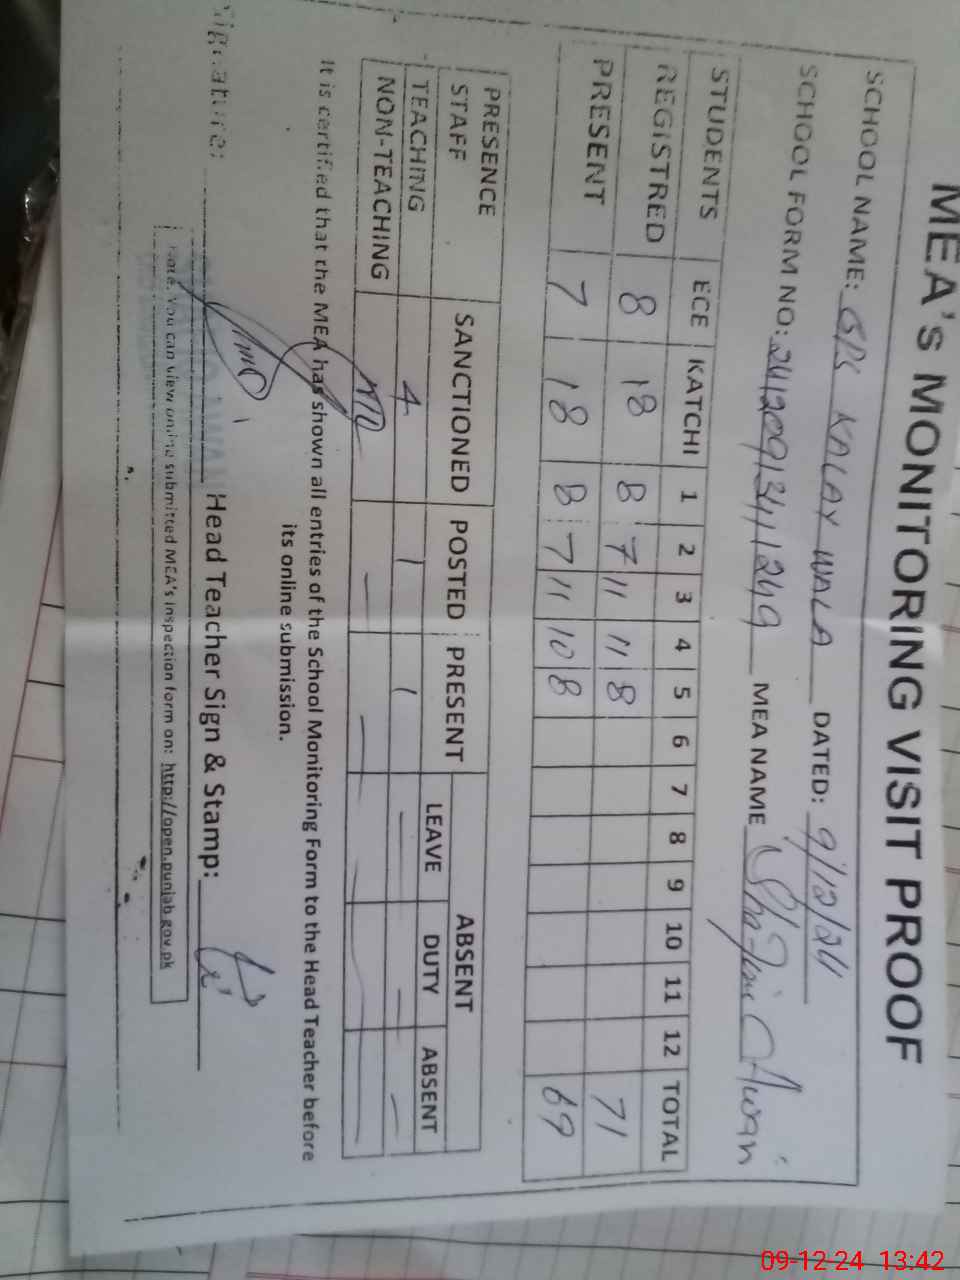 MEA's MONITORING VISIT PROOF
SCHOOL NAME: GPS KALAY WALA DATED: 9/12/24
SCHOOL FORM NO: MEA NAME Awan
STUDENTS ECE KATCHI 1 2 3 4 5 6 7 8 9 10 11 12 TOTAL
REGISTRED 8 18 8 7 11 11 8 71
PRESENT 7 18 8 7 11 10 8 69
PRESENCE STAFF SANCTIONED POSTED PRESENT ABSENT
LEAVE DUTY ABSENT
TEACHING 4 1 1 — — —
NON-TEACHING — — — — —
It is certified that the MEA has shown all entries of the School Monitoring Form to the Head Teacher before
its online submission.
Signature: Head Teacher Sign & Stamp:
Note: You can view online submitted MEA's inspection form on: http://open.punjab.gov.pk
09-12-24 13:42